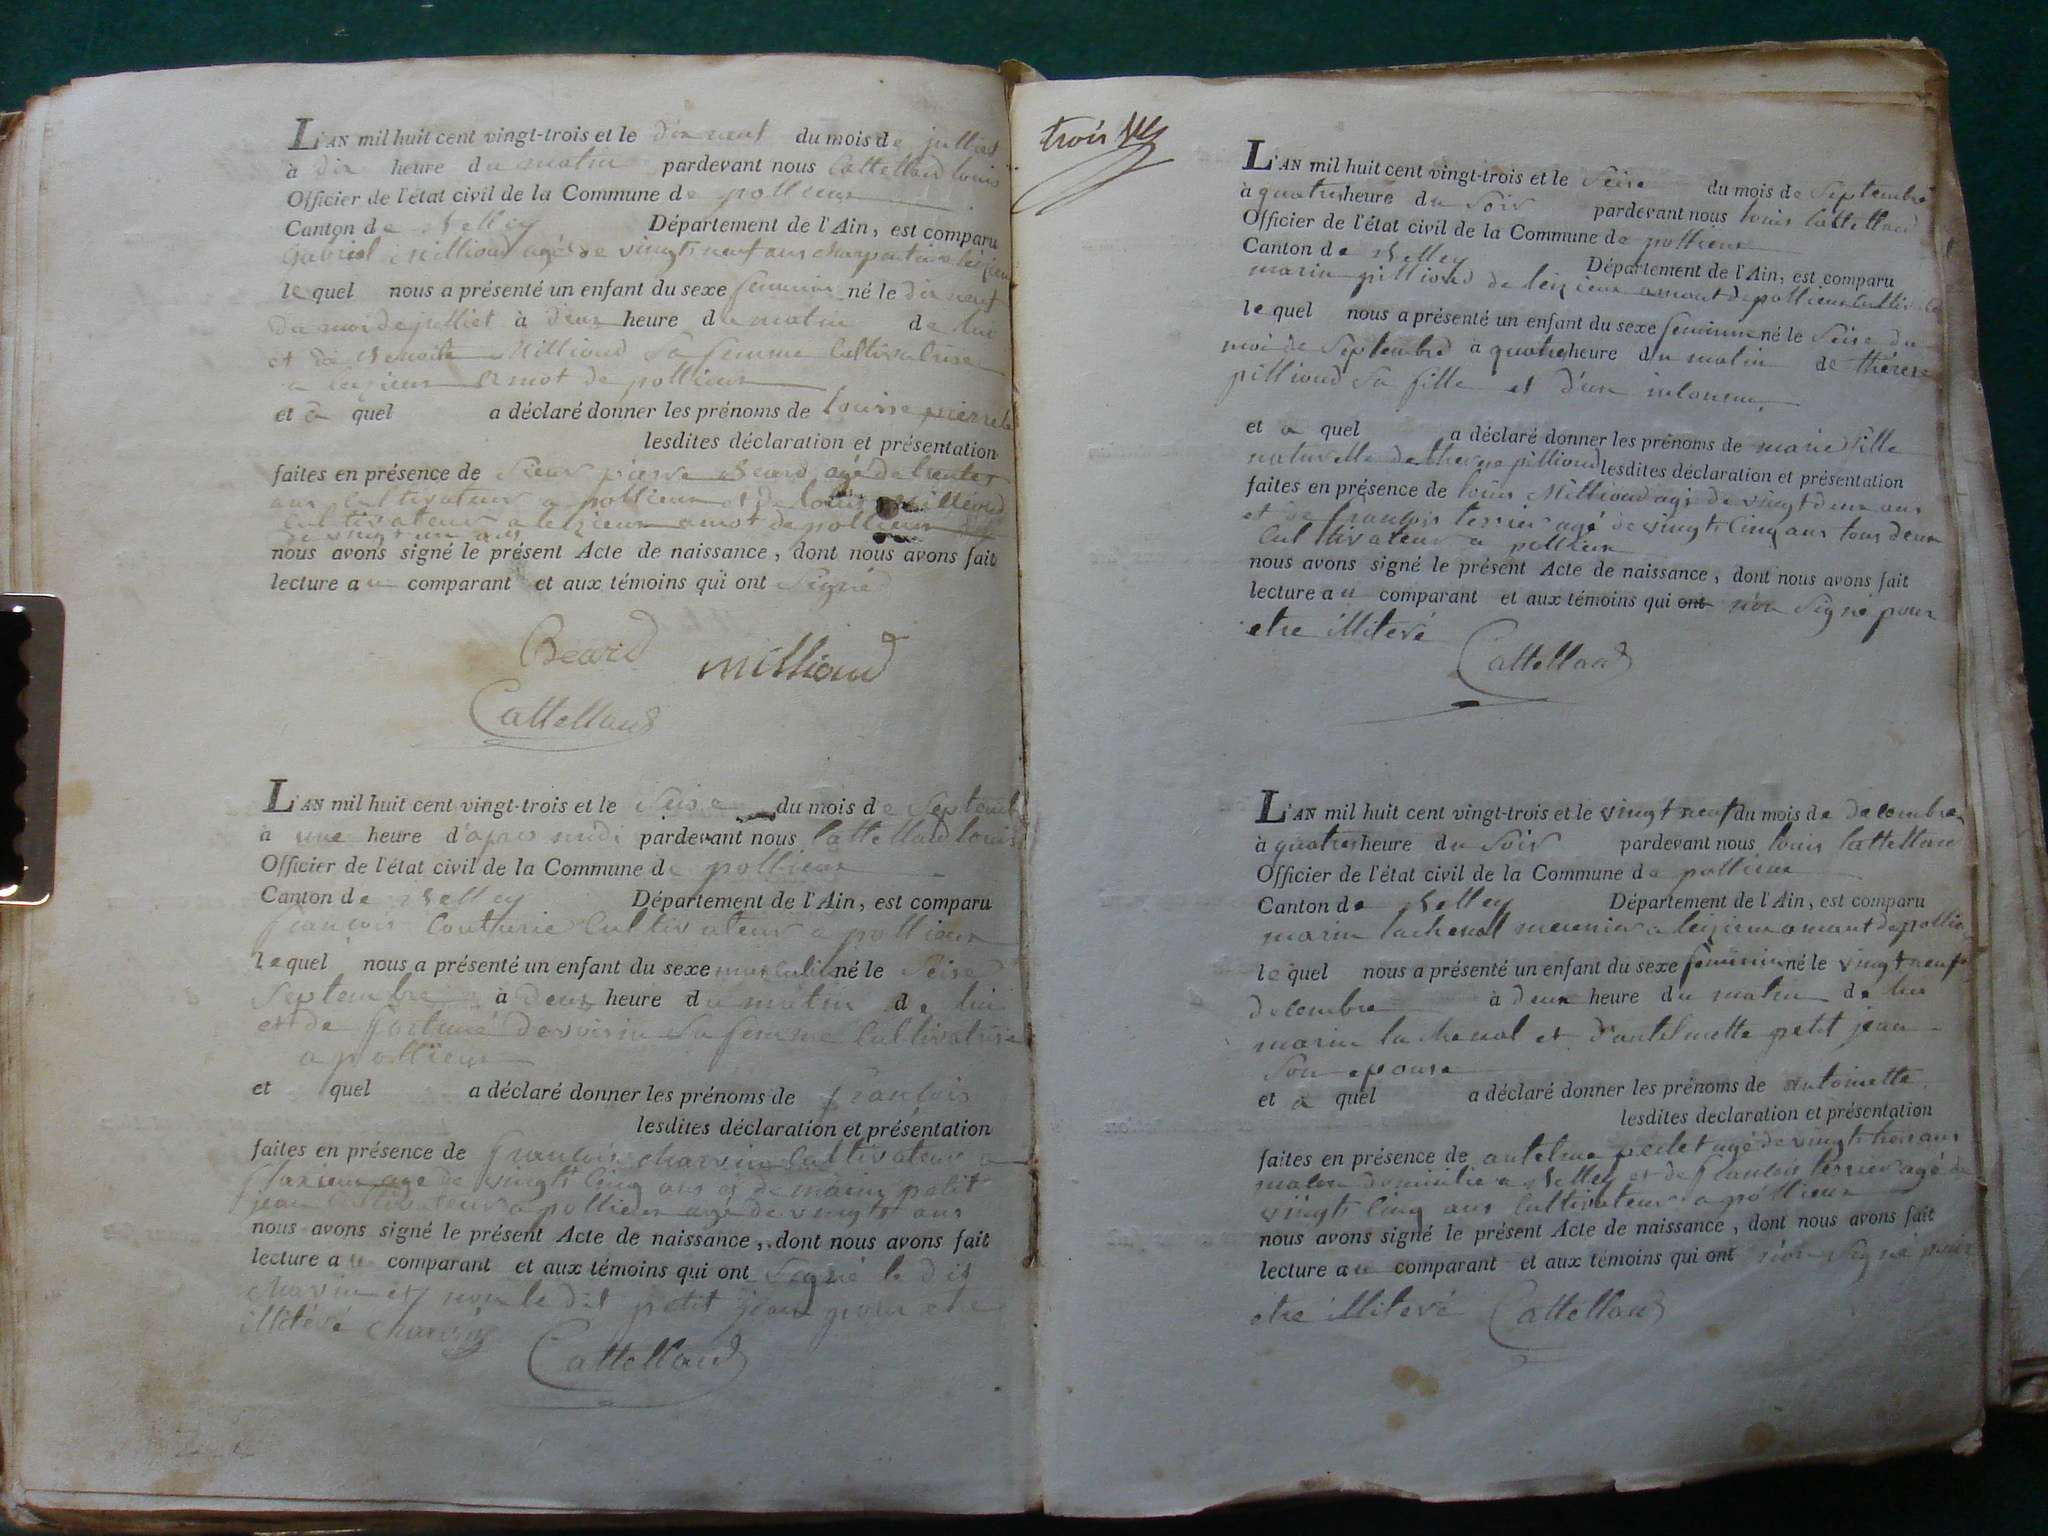 L'AN mil huit cent vingt-trois et le dix neuf du mois de julliet
à dix heure du matin pardevant nous Cattelland louis
Officier de l'état civil de la Commune de pollieux
Canton de Belley Département de l'Ain, est comparu
Gabriel Millioud agé de vingt neuf ans charpentier
lequel nous a présenté un enfant du sexe feminin né le dix neuf
du moi de julliet à deux heure du matin de lui
et de Benoite Millioud sa femme Cultivatrise
a leizieux amot de pollieux
et a quel a déclaré donner les prénoms de louise pierrete
lesdites déclaration et présentation
faites en présence de sieur pierre Beard agé de trente
ans Cultivateur a pollieux et de louis Millioud
Cultivateur a leizieux amot de pollieux
de vingt un ans
nous avons signé le présent Acte de naissance, dont nous avons fait
lecture au comparant et aux témoins qui ont Signé
Beard millioud
Cattelland
L'AN mil huit cent vingt-trois et le Seise du mois de Septembre
à une heure d'apres midi pardevant nous Cattelland louis
Officier de l'état civil de la Commune de pollieux
Canton de Belley Département de l'Ain, est comparu
françois Couturie Cultivateur a pollieux
lequel nous a présenté un enfant du sexe masculin né le Seise
Septembre à deux heure du matin de lui
et de fortuné Devoisin sa femme Cultivatrise
a pollieux
et quel a déclaré donner les prénoms de françois
lesdites déclaration et présentation
faites en présence de françois charvin Cultivateur a
flaxieux agé de vingt Cinq ans et de marin petit
jean Cultivateur a pollieux agé de vingt ans
nous avons signé le présent Acte de naissance, dont nous avons fait
lecture au comparant et aux témoins qui ont Signé le dit
charvin et non le dit petit jean pour etre
illiteré charvin
Cattelland
trois
L'AN mil huit cent vingt-trois et le Seise du mois de Septembre
à quatres heure du Soir pardevant nous louis Cattelland
Officier de l'état civil de la Commune de pollieux
Canton de Belley Département de l'Ain, est comparu
marin pillioud de leizieux amont de pollieux
lequel nous a présenté un enfant du sexe feminin né le Seise du
moi de Septembre à quatres heure du matin de thérese
pillioud Sa fille et d'un inconnu
et a quel a déclaré donner les prénoms de marie fille
naturelle de therese pillioud lesdites déclaration et présentation
faites en présence de louis Millioud agé de vingt deux ans
et de françois terrier agé de vingt Cinq ans tous deux
Cultivateur a pollieux
nous avons signé le présent Acte de naissance, dont nous avons fait
lecture au comparant et aux témoins qui ont n'on Signé pour
etre illiteré
Cattelland
L'AN mil huit cent vingt-trois et le vingt neuf du mois de decembre
à quatres heure du Soir pardevant nous louis Cattelland
Officier de l'état civil de la Commune de pollieux
Canton de Belley Département de l'Ain, est comparu
marin lacheval meunier a leizieux amont de pollieux
lequel nous a présenté un enfant du sexe feminin né le vingt neuf
decembre à deux heure du matin de lui
marin lacheval et d'antelmette petit jean
Son epouse
et a quel a déclaré donner les prénoms de antoinette
lesdites declaration et présentation
faites en présence de antelme agé de vingt trois ans
domicilié a Belley et de françois terrier agé de
vingt Cinq ans Cultivateur a pollieux
nous avons signé le présent Acte de naissance, dont nous avons fait
lecture au comparant et aux témoins qui ont n'on Signé pour
etre illiteré Cattelland